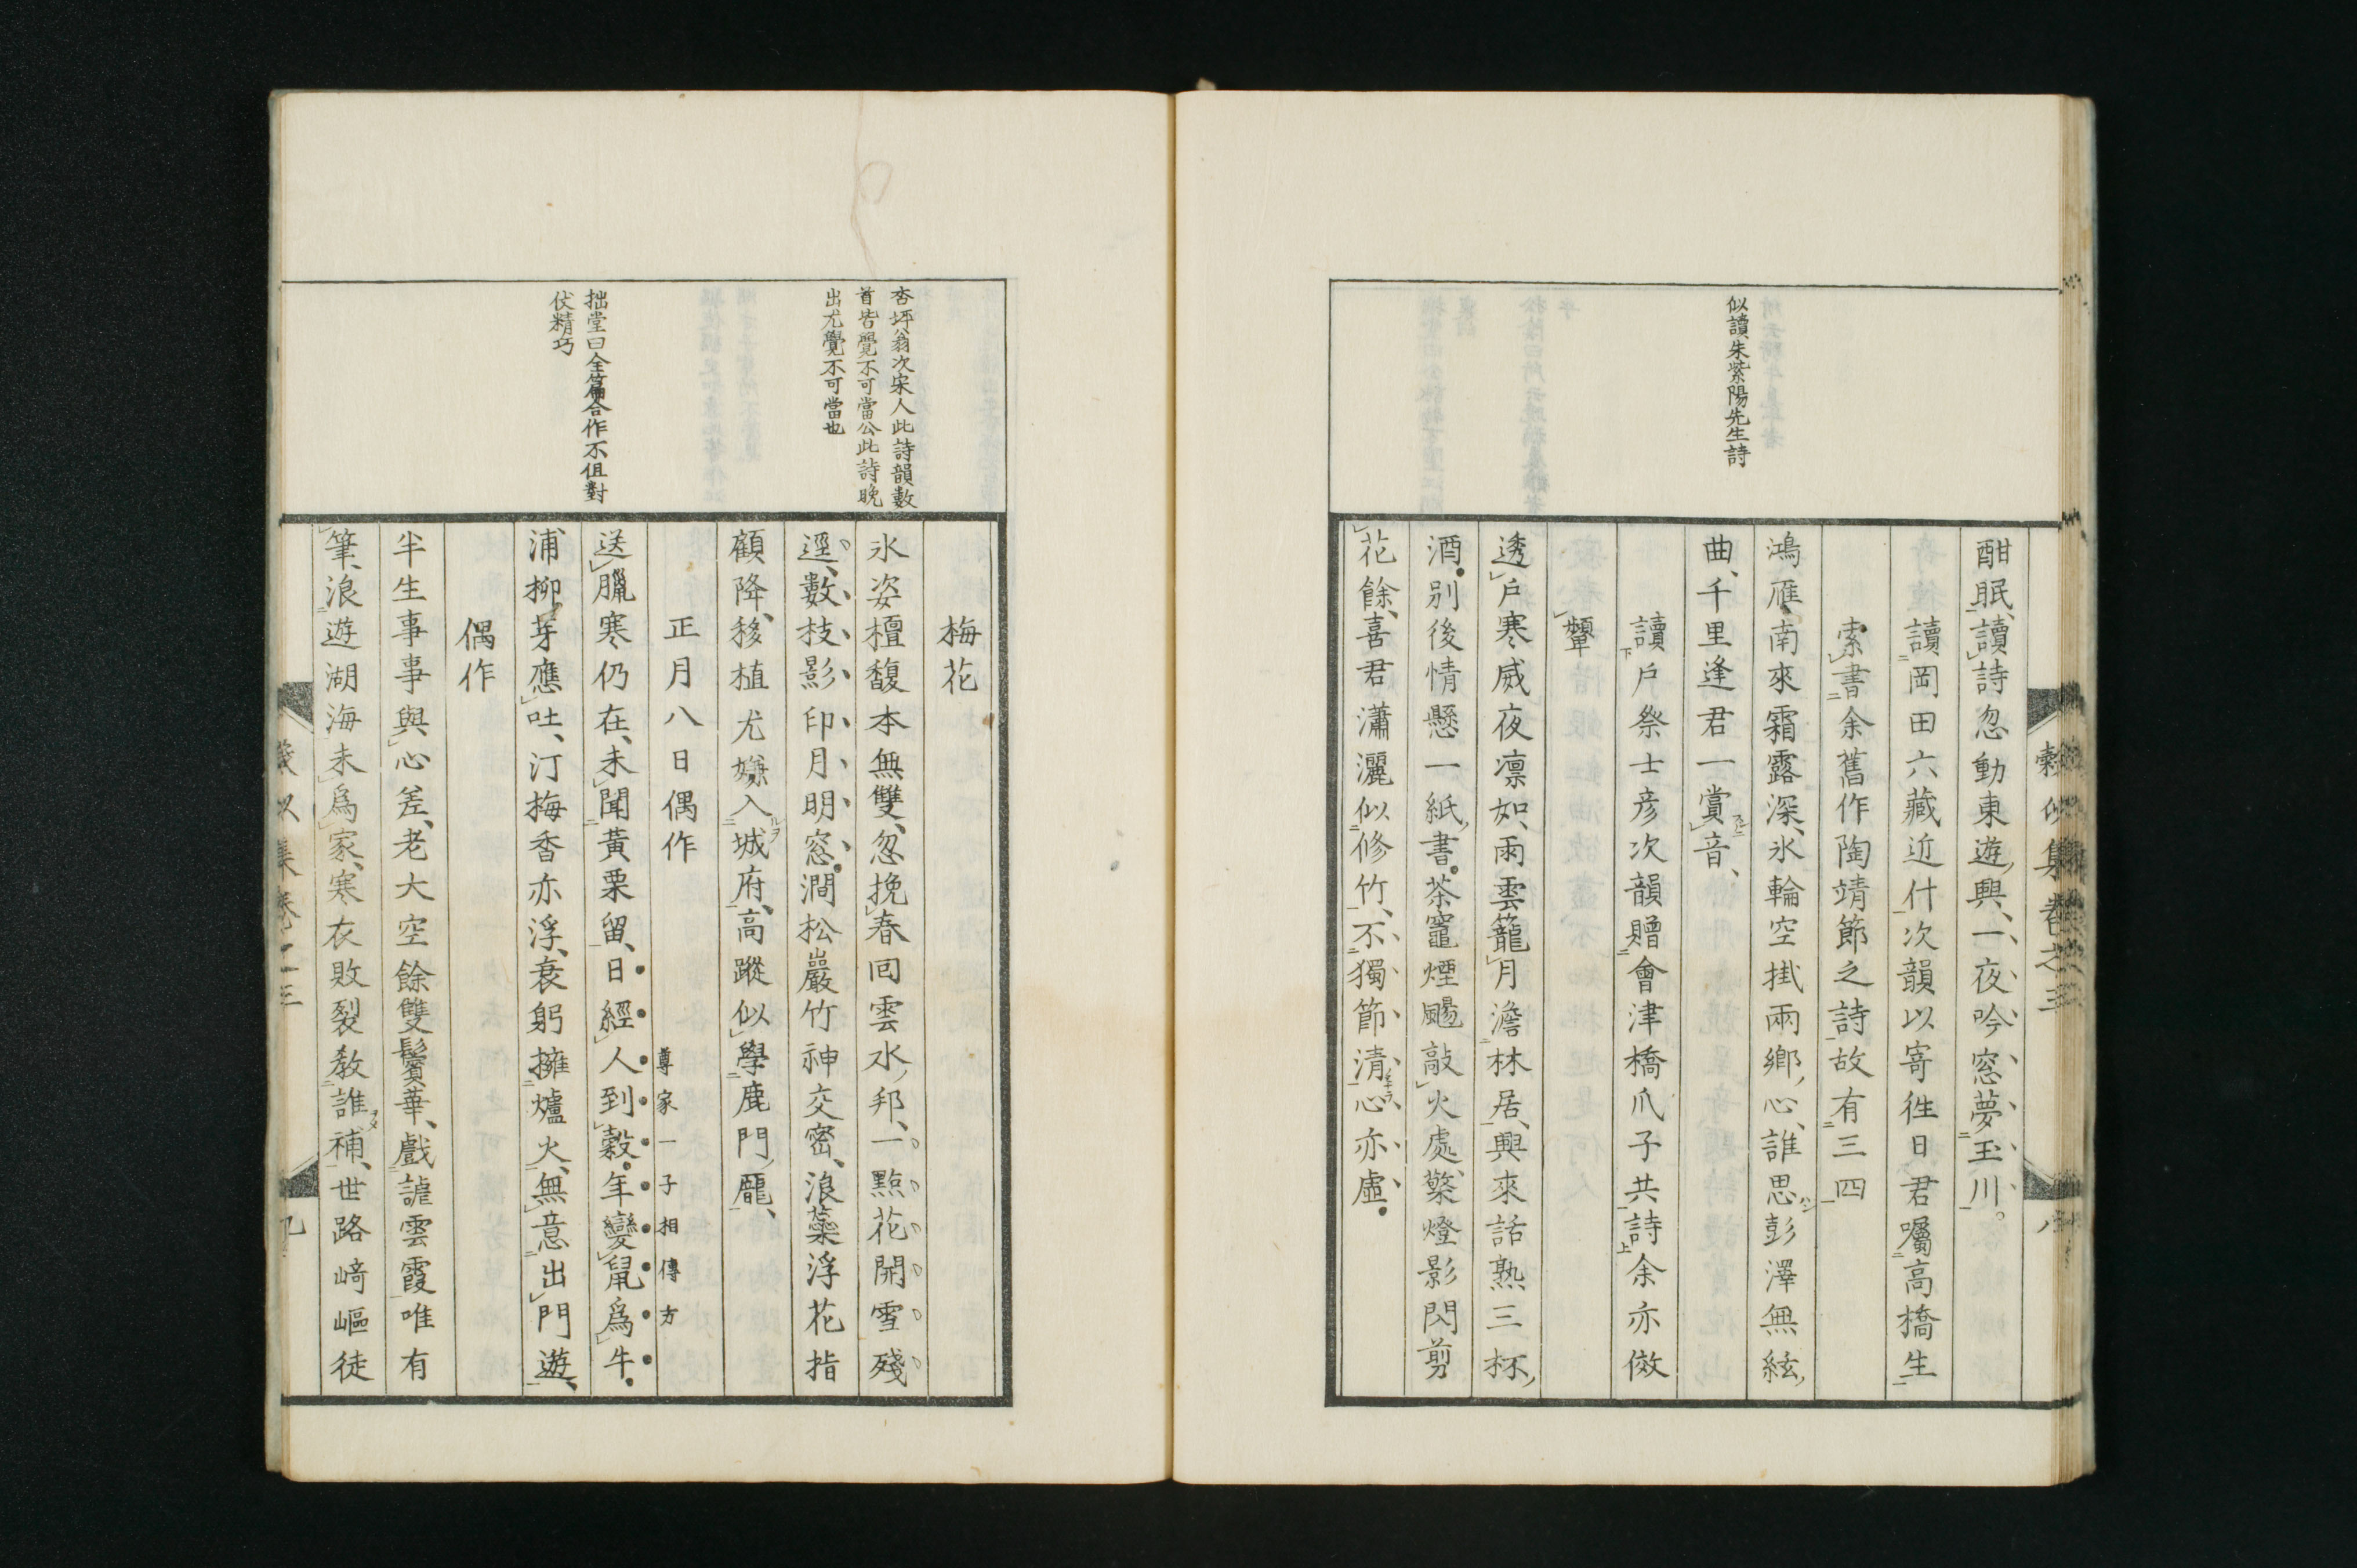 似讀朱紫陽先生詩
酣眠、讀詩忽動東遊興、一夜吟窓夢玉川。
讀岡田六藏近什次韻以寄徃日君囑高橋生
索書余舊作陶靖節之詩故有三四
鴻雁南來霜露深、氷輪空掛兩鄕心、誰思彭澤無絃
曲、千里逢君一賞音、
讀戶祭士彥次韻贈會津橋爪子共詩余亦傚
顰
透戶寒威夜凛如、雨雲籠月澹林居、興來話熟三杯
酒。別後情懸一紙書。茶竈煙颺敲火處、檠燈影閃剪
花餘、喜君瀟灑似修竹、不獨節淸心亦虛。
杏坪翁次宋人此詩韻數
首皆覺不可當公此詩晚
出尤覺不可當也
拙堂曰全篇合作不但對
伏精巧
梅花
氷姿檀馥本無雙、忽挽春囘雲水邦、一點花開雪殘
逕、數枝影印月明窓。澗松巖竹神交密、浪蘂浮花指
顧降、移植尤嫌入城府、高蹤似學鹿門龐、
正月八日偶作
尊家一子相傳方
送臘寒仍在、未聞黃栗留、日經人到穀。年變鼠爲牛。
浦柳芽應吐、汀梅香亦浮、衰躬擁爐火、無意出門遊、
偶作
半生事事與心差、老大空餘雙鬢華、戲謔雲霞唯有
筆、浪遊湖海未爲家、寒衣敗裂敎誰補、世路崎嶇徒